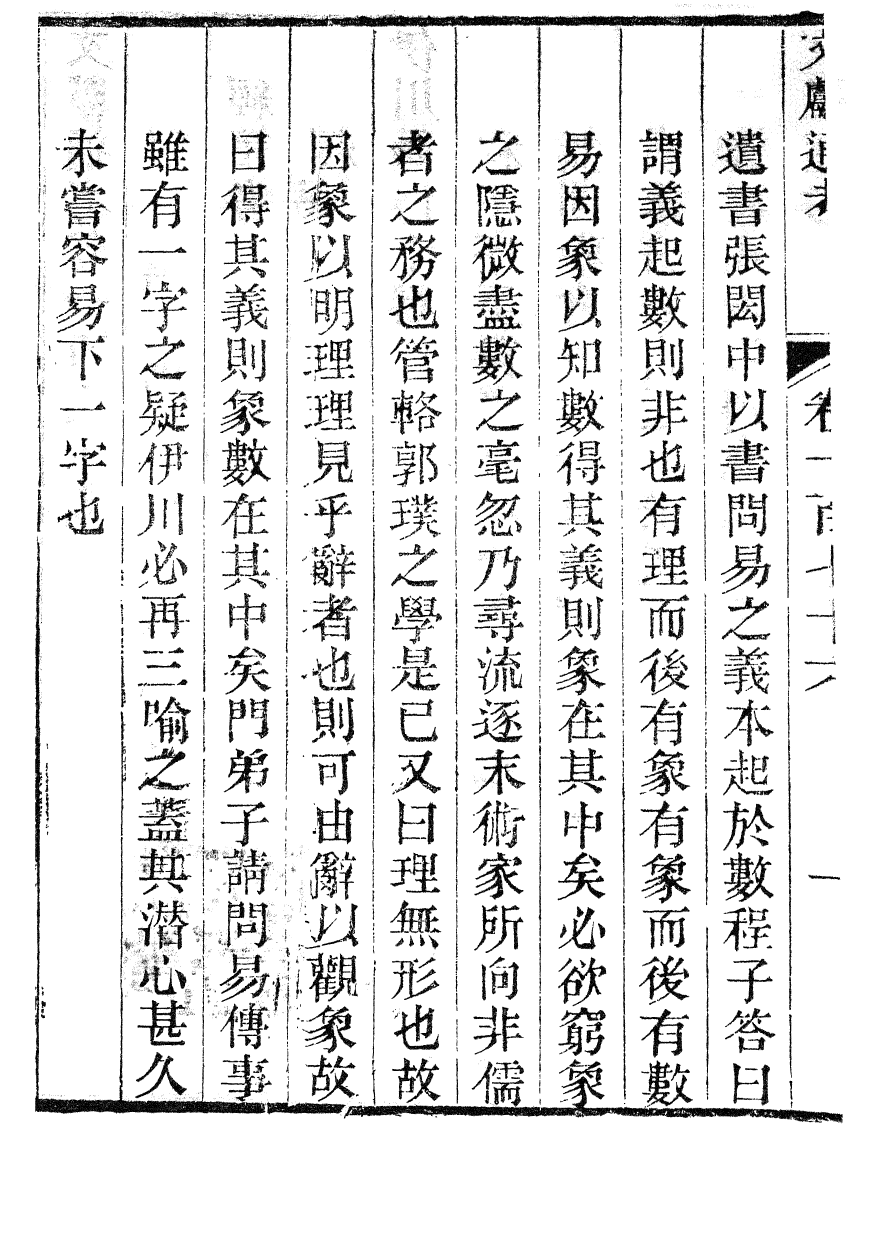 文獻通考 卷一百七十六 一
遺書張閎中以書問易之義本起於數程子答曰
謂義起數則非也有理而後有象有象而後有數
易因象以知數得其義則象在其中矣必欲窮象
之隱微盡數之毫忽乃尋流逐末術家所向非儒
者之務也管輅郭璞之學是已又曰理無形也故
因象以明理理見乎辭者也則可由辭以觀象故
曰得其義則象數在其中矣門弟子請問易傳事
雖有一字之疑伊川必再三喻之蓋其潛心甚久
未嘗容易下一字也